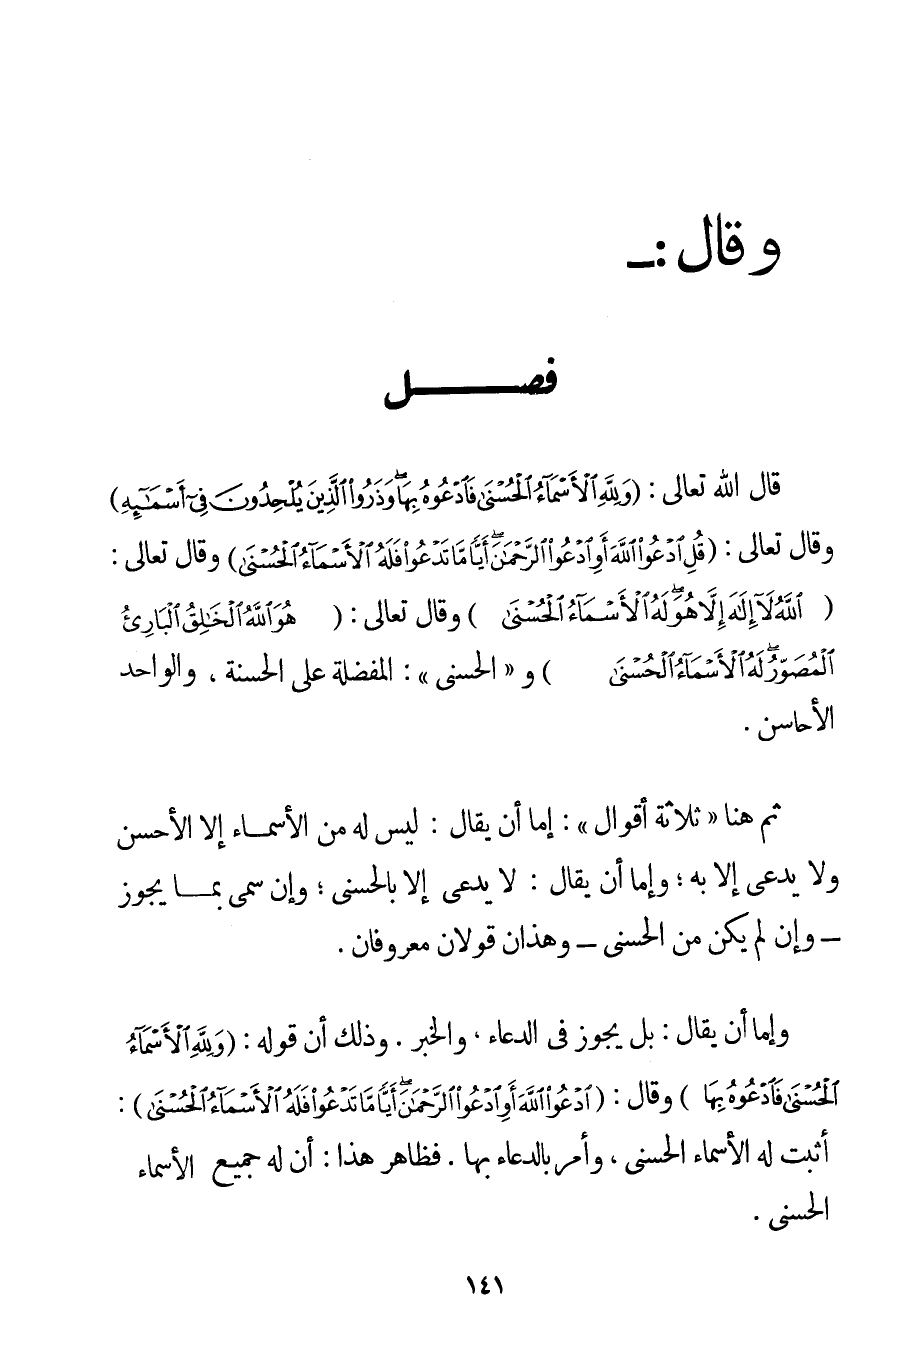 وقال :ـ
فصـــــــل
قال الله تعالى : (وَلِلَّهِ ٱلْأَسْمَآءُ ٱلْحُسْنَىٰ فَٱدْعُوهُ بِهَا ۖ وَذَرُوا۟ ٱلَّذِينَ يُلْحِدُونَ فِىٓ أَسْمَـٰٓئِهِ)
وقال تعالى : (قُلِ ٱدْعُوا۟ ٱللَّهَ أَوِ ٱدْعُوا۟ ٱلرَّحْمَـٰنَ ۖ أَيًّا مَّا تَدْعُوا۟ فَلَهُ ٱلْأَسْمَآءُ ٱلْحُسْنَىٰ) وقال تعالى :
( ٱللَّهُ لَآ إِلَـٰهَ إِلَّا هُوَ ۖ لَهُ ٱلْأَسْمَآءُ ٱلْحُسْنَىٰ ) وقال تعالى : ( هُوَ ٱللَّهُ ٱلْخَـٰلِقُ ٱلْبَارِئُ
ٱلْمُصَوِّرُ ۖ لَهُ ٱلْأَسْمَآءُ ٱلْحُسْنَىٰ ) و « الحسنى » : المفضلة على الحسنة ، والواحد
الأحاسن .
ثم هنا « ثلاثة أقوال » : إما أن يقال : ليس له من الأسمـاء إلا الأحسن
ولا يدعى إلا به ؛ وإما أن يقال : لا يدعى إلا بالحسنى ؛ وإن سمى بمـا يجوز
ـ وإن لم يكن من الحسنى ـ وهذان قولان معروفان .
وإما أن يقال : بل يجوز فى الدعاء ، والخبر . وذلك أن قوله : (وَلِلَّهِ ٱلْأَسْمَآءُ
ٱلْحُسْنَىٰ فَٱدْعُوهُ بِهَا ) وقال : ( ٱدْعُوا۟ ٱللَّهَ أَوِ ٱدْعُوا۟ ٱلرَّحْمَـٰنَ ۖ أَيًّا مَّا تَدْعُوا۟ فَلَهُ ٱلْأَسْمَآءُ ٱلْحُسْنَىٰ ) :
أثبت له الأسماء الحسنى ، وأمر بالدعاء بها . فظاهر هذا : أن له جميع الأسماء
الحسنى .
١٤١